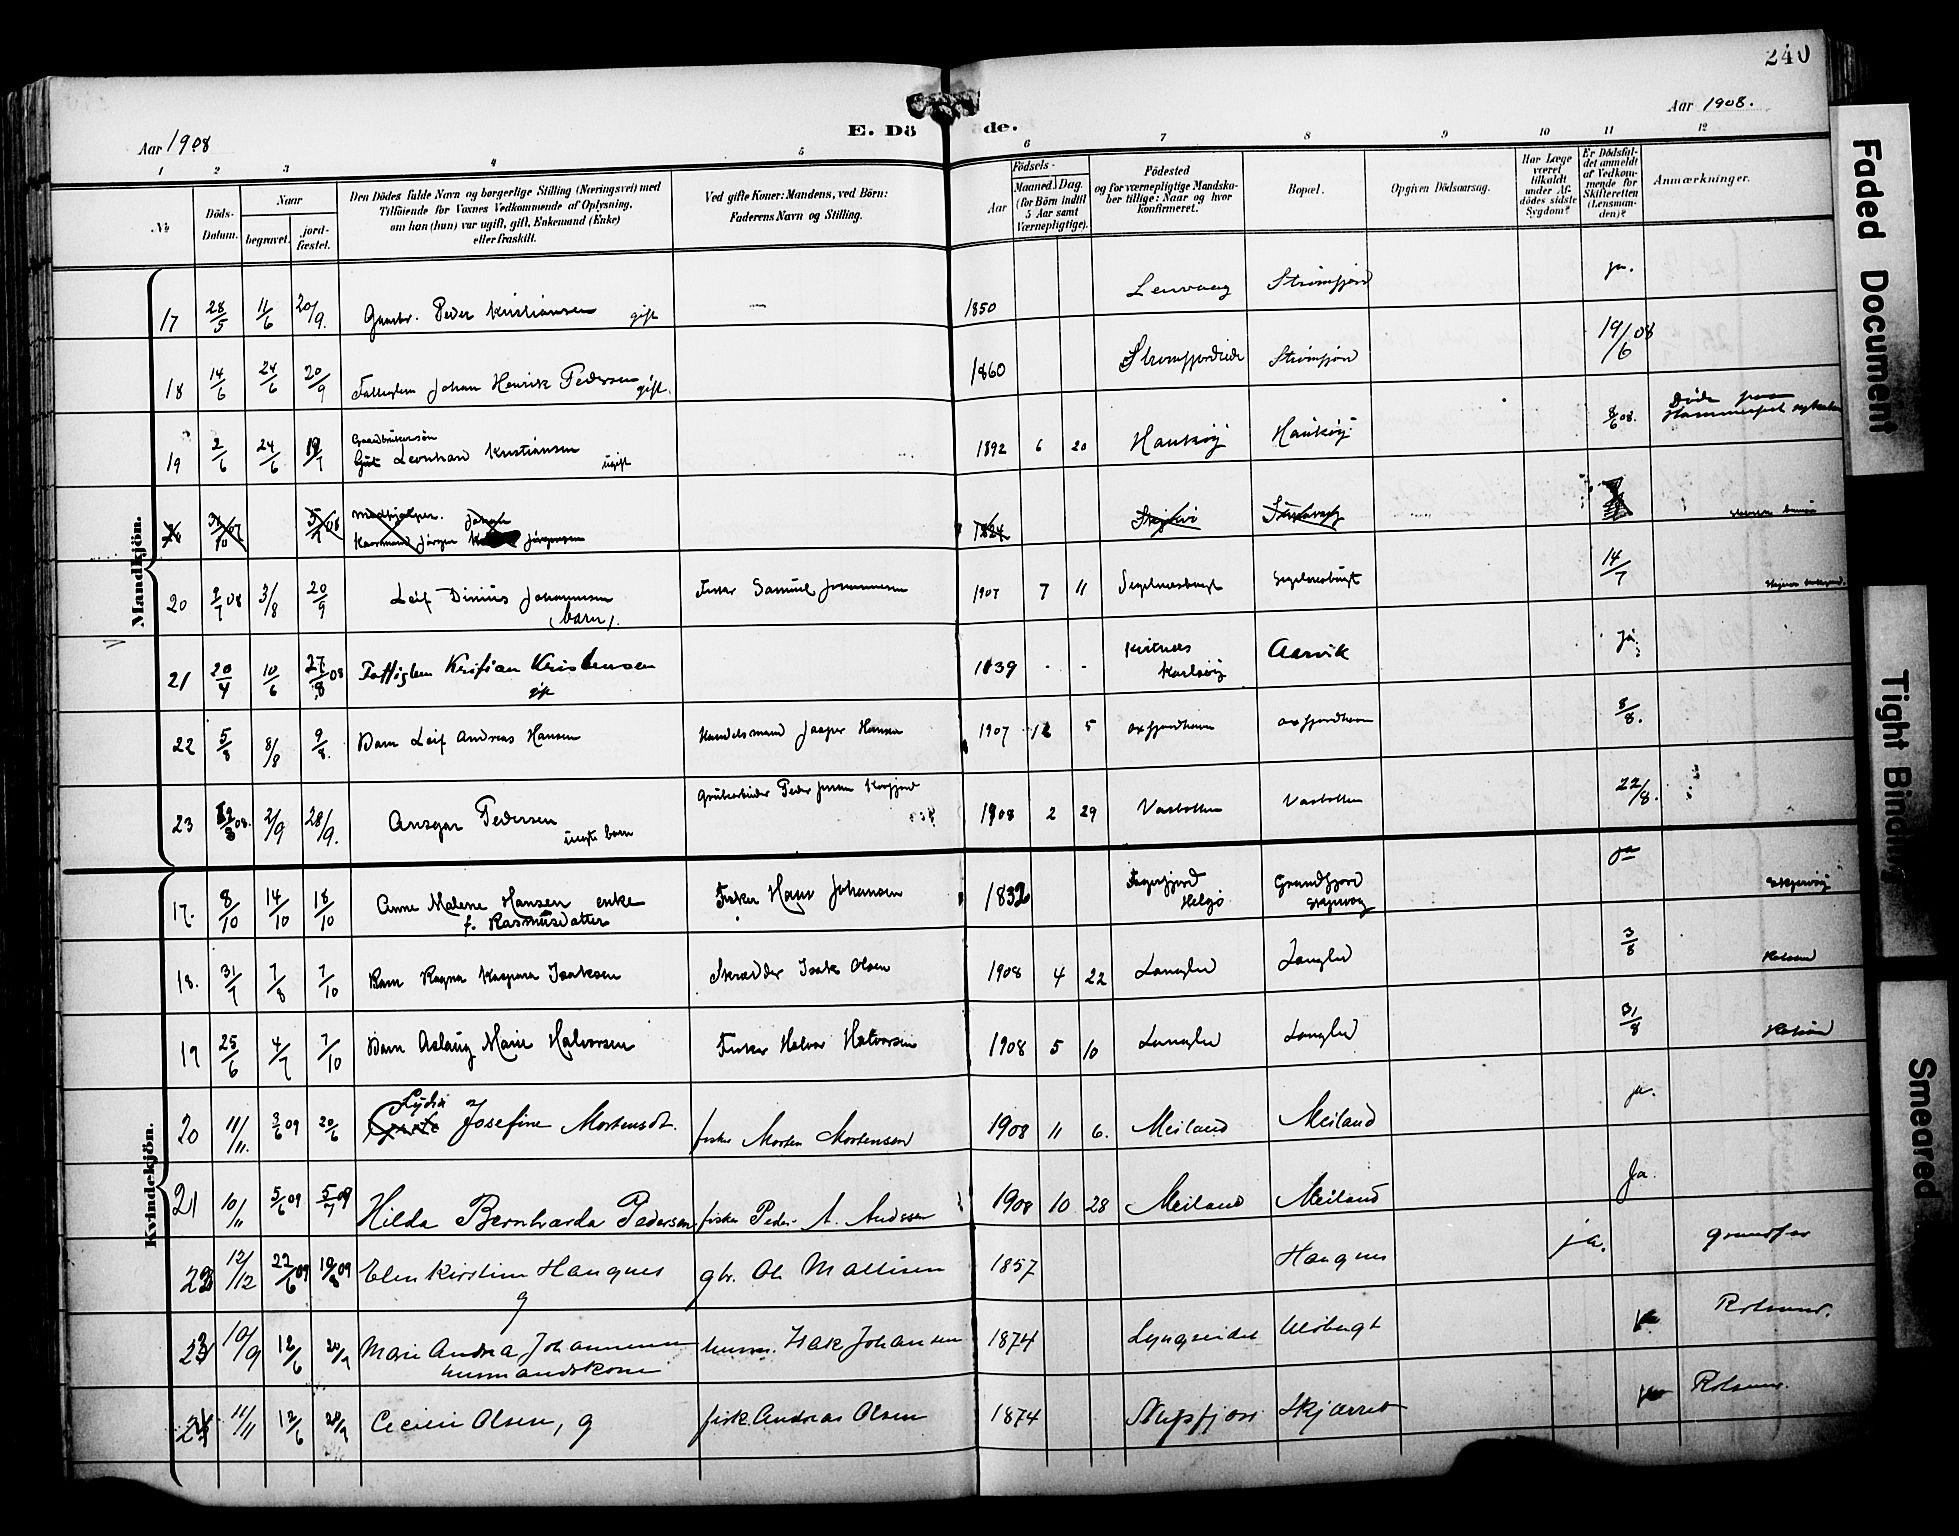 240
Aar 1908
E. Dö de.
Aar 1908.
1 2 3 4 5 6 7 8 9 10 11 12
No
Döds-Datum.
Naar
begravet.
jord-fæstet.
Den Dödes fulde Navn og borgerlige Stilling (Næringsvei) med
Tilföiende for Voxnes Vedkommende af Oplysning,
om han (hun) var ugift, gift, Enkemand (Enke)
eller fraskilt.
Ved gifte Koner: Mandens, ved Börn:
Faderens Navn og Stilling.
Födsels-
Aar
Maaned. Dag.
(for Börn indtil
5 Aar samt
Værnepligtige).
Födested
og for værnepligtige Mandska-
ber tillige: Naar og hvor
konfirmeret.
Bopæl.
Opgiven Dödsaarsag.
Har Læge
været
tilkaldt
under Af-
dödes sidste
Sygdom?
Er Dödsfal-
det anmeldt
af Vedkom-
mende for
Skifteretten
(Lensman-
den)?
Anmærkninger.
Mandkjön.
17 28/5 11/6 20/9. Gaardbr. Peder Kristiansen gift — 1850 Lenvaag Strømfjord ja.
18 14/6 24/6 20/9 Johan Henrik Pedersen gift. 1860 Strømfjord 19/6 08
19 2/6 24/6 19/7 Gaardbrukersøn
Leonhard Kristiansen ugift 1892 6 20 Haukøy Haukøy 8/6 08. Døde paa
Jørgen Jørgensen 1824
20 2/7 08 3/8 20/9 Leif Dinius Johannesen
(barn). Fisker Samuel Johannesen 1907 7 11 Segelnesbugt Segelnesbugt 14/7
21 20/4 10/6 27/8 08 Fattiglem Kristian Kristensen
gift 1839 - - Kvitnes
Karlsøy Aarvik Ja
22 5/8 8/8 9/8. Barn Leif Andreas Hansen Handelsmand Jasper Hansen 1907 12 5 Oxfjordhavn Oxfjordhavn 8/8.
23 12/8 08. 2/9 28/9. Ansgar Pedersen
barn 1908 2 29 Vasbotten Vasbotten 22/8.
Kvindekjön.
17. 8/10 14/10 18/10 Anne Malene Hansen enke
f. Rasmusdatter Fisker Hans Johansen 1832 Fagerfjord
Helgø Grundfjord
Skjervøy ja Skjervøy
18. 31/7 7/8 7/10 Barn Ragna Kaspara Isaksen Skrædder Isak Olsen 1908 4 22 Langlid Langlid 3/8
19 25/6 4/7 7/10 Barn Aslaug Marie Halvorsen Fisker Halvor Halvorsen 1908 5 10 Langlid Langlid 31/8
20 11/11. 3/6 09 20/6 Lydia
Josefine Mortensdt. fisker Morten Mortensen 1908 11 6. Meiland Meiland ja.
21 10/11 5/6 09 5/7 09 Hilda Bernharda Pedersen fisker Peder A. Andersen 1908 10 28 Meiland Meiland Ja.
22 12/12 22/6 09 19/8 09 Elen Kirstine Haugnes
g gbr. Ole Mathisen 1857 Haugnes ja.
23 10/9 12/6 20/9 Marie Andrea Johannesen
husmandskone husm. Isak Johansen 1874 Lyngseidet Ulsbugt Rotsund.
24 11/11 12/6 20/9 Cecilie Olsen, g fisk. Andreas Olsen 1874 Skjærvø Rotsund.
Faded Document
Tight Binding
Smeared